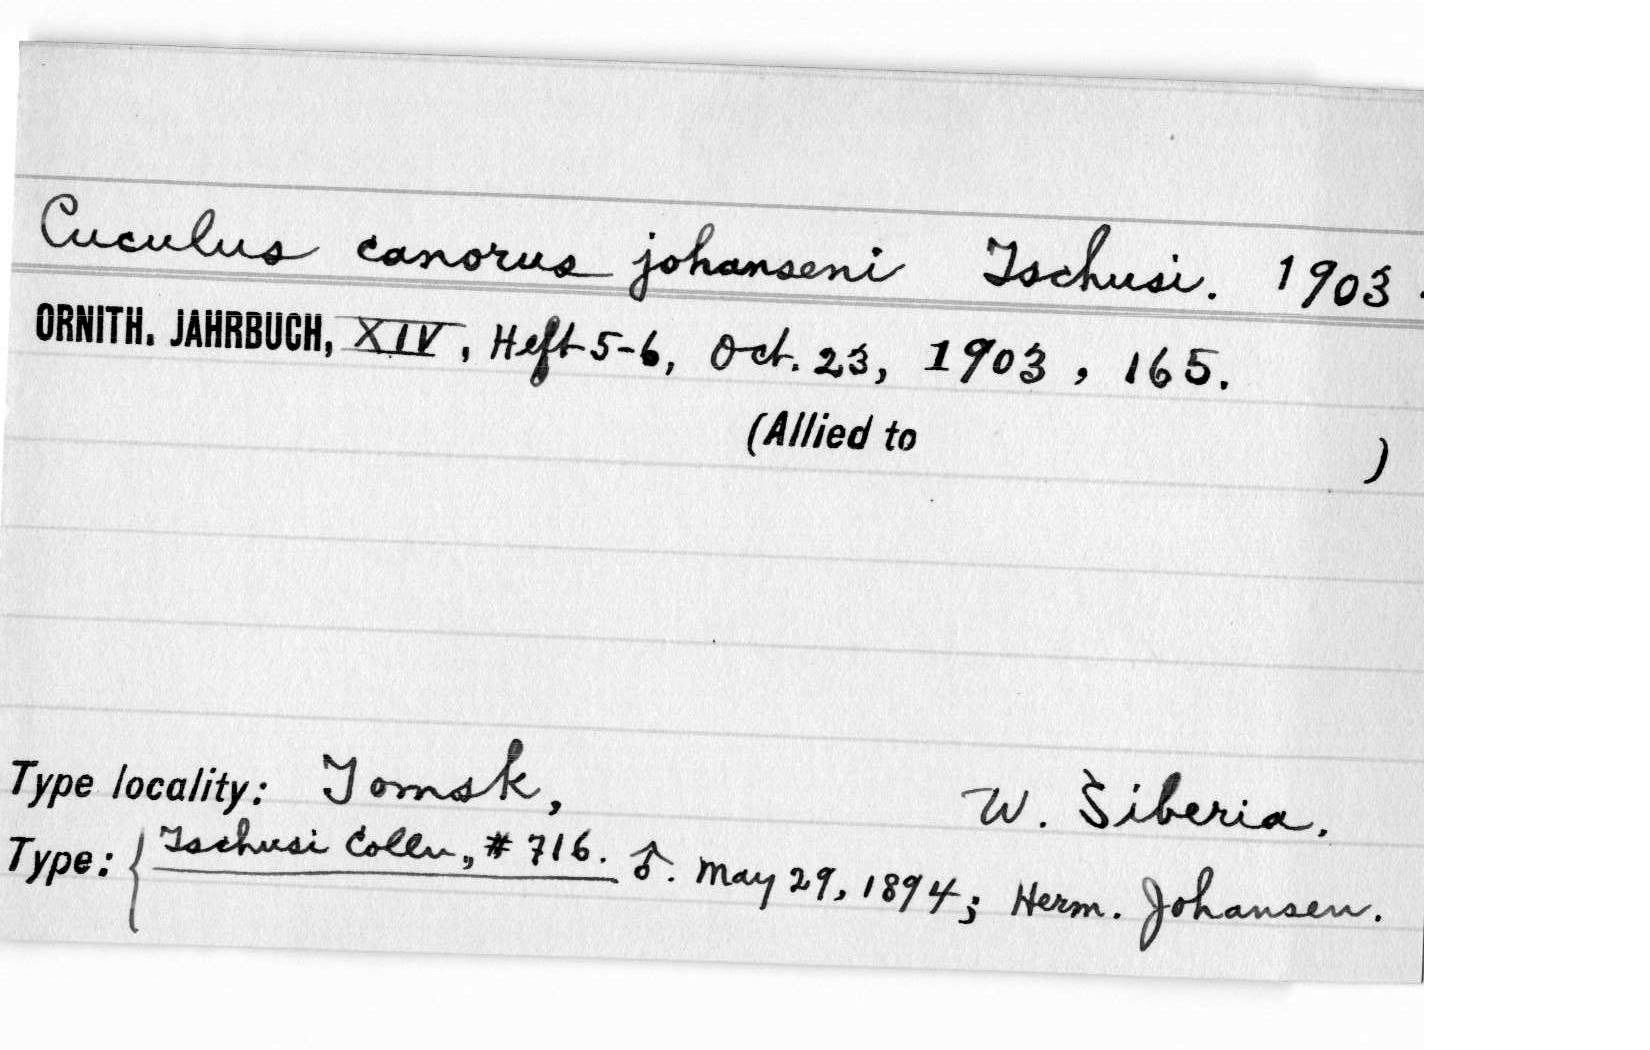 Cuculus canorus johanseni Tschusi. 1903.
ORNITH. JAHRBUCH, XIV, Heft 5-6, Oct. 23, 1903, 165.
(Allied to )
Type locality: Tomsk, W. Siberia.
Type: { Tschusi Colln., # 716. ♂. May 29, 1894; Herm. Johansen.